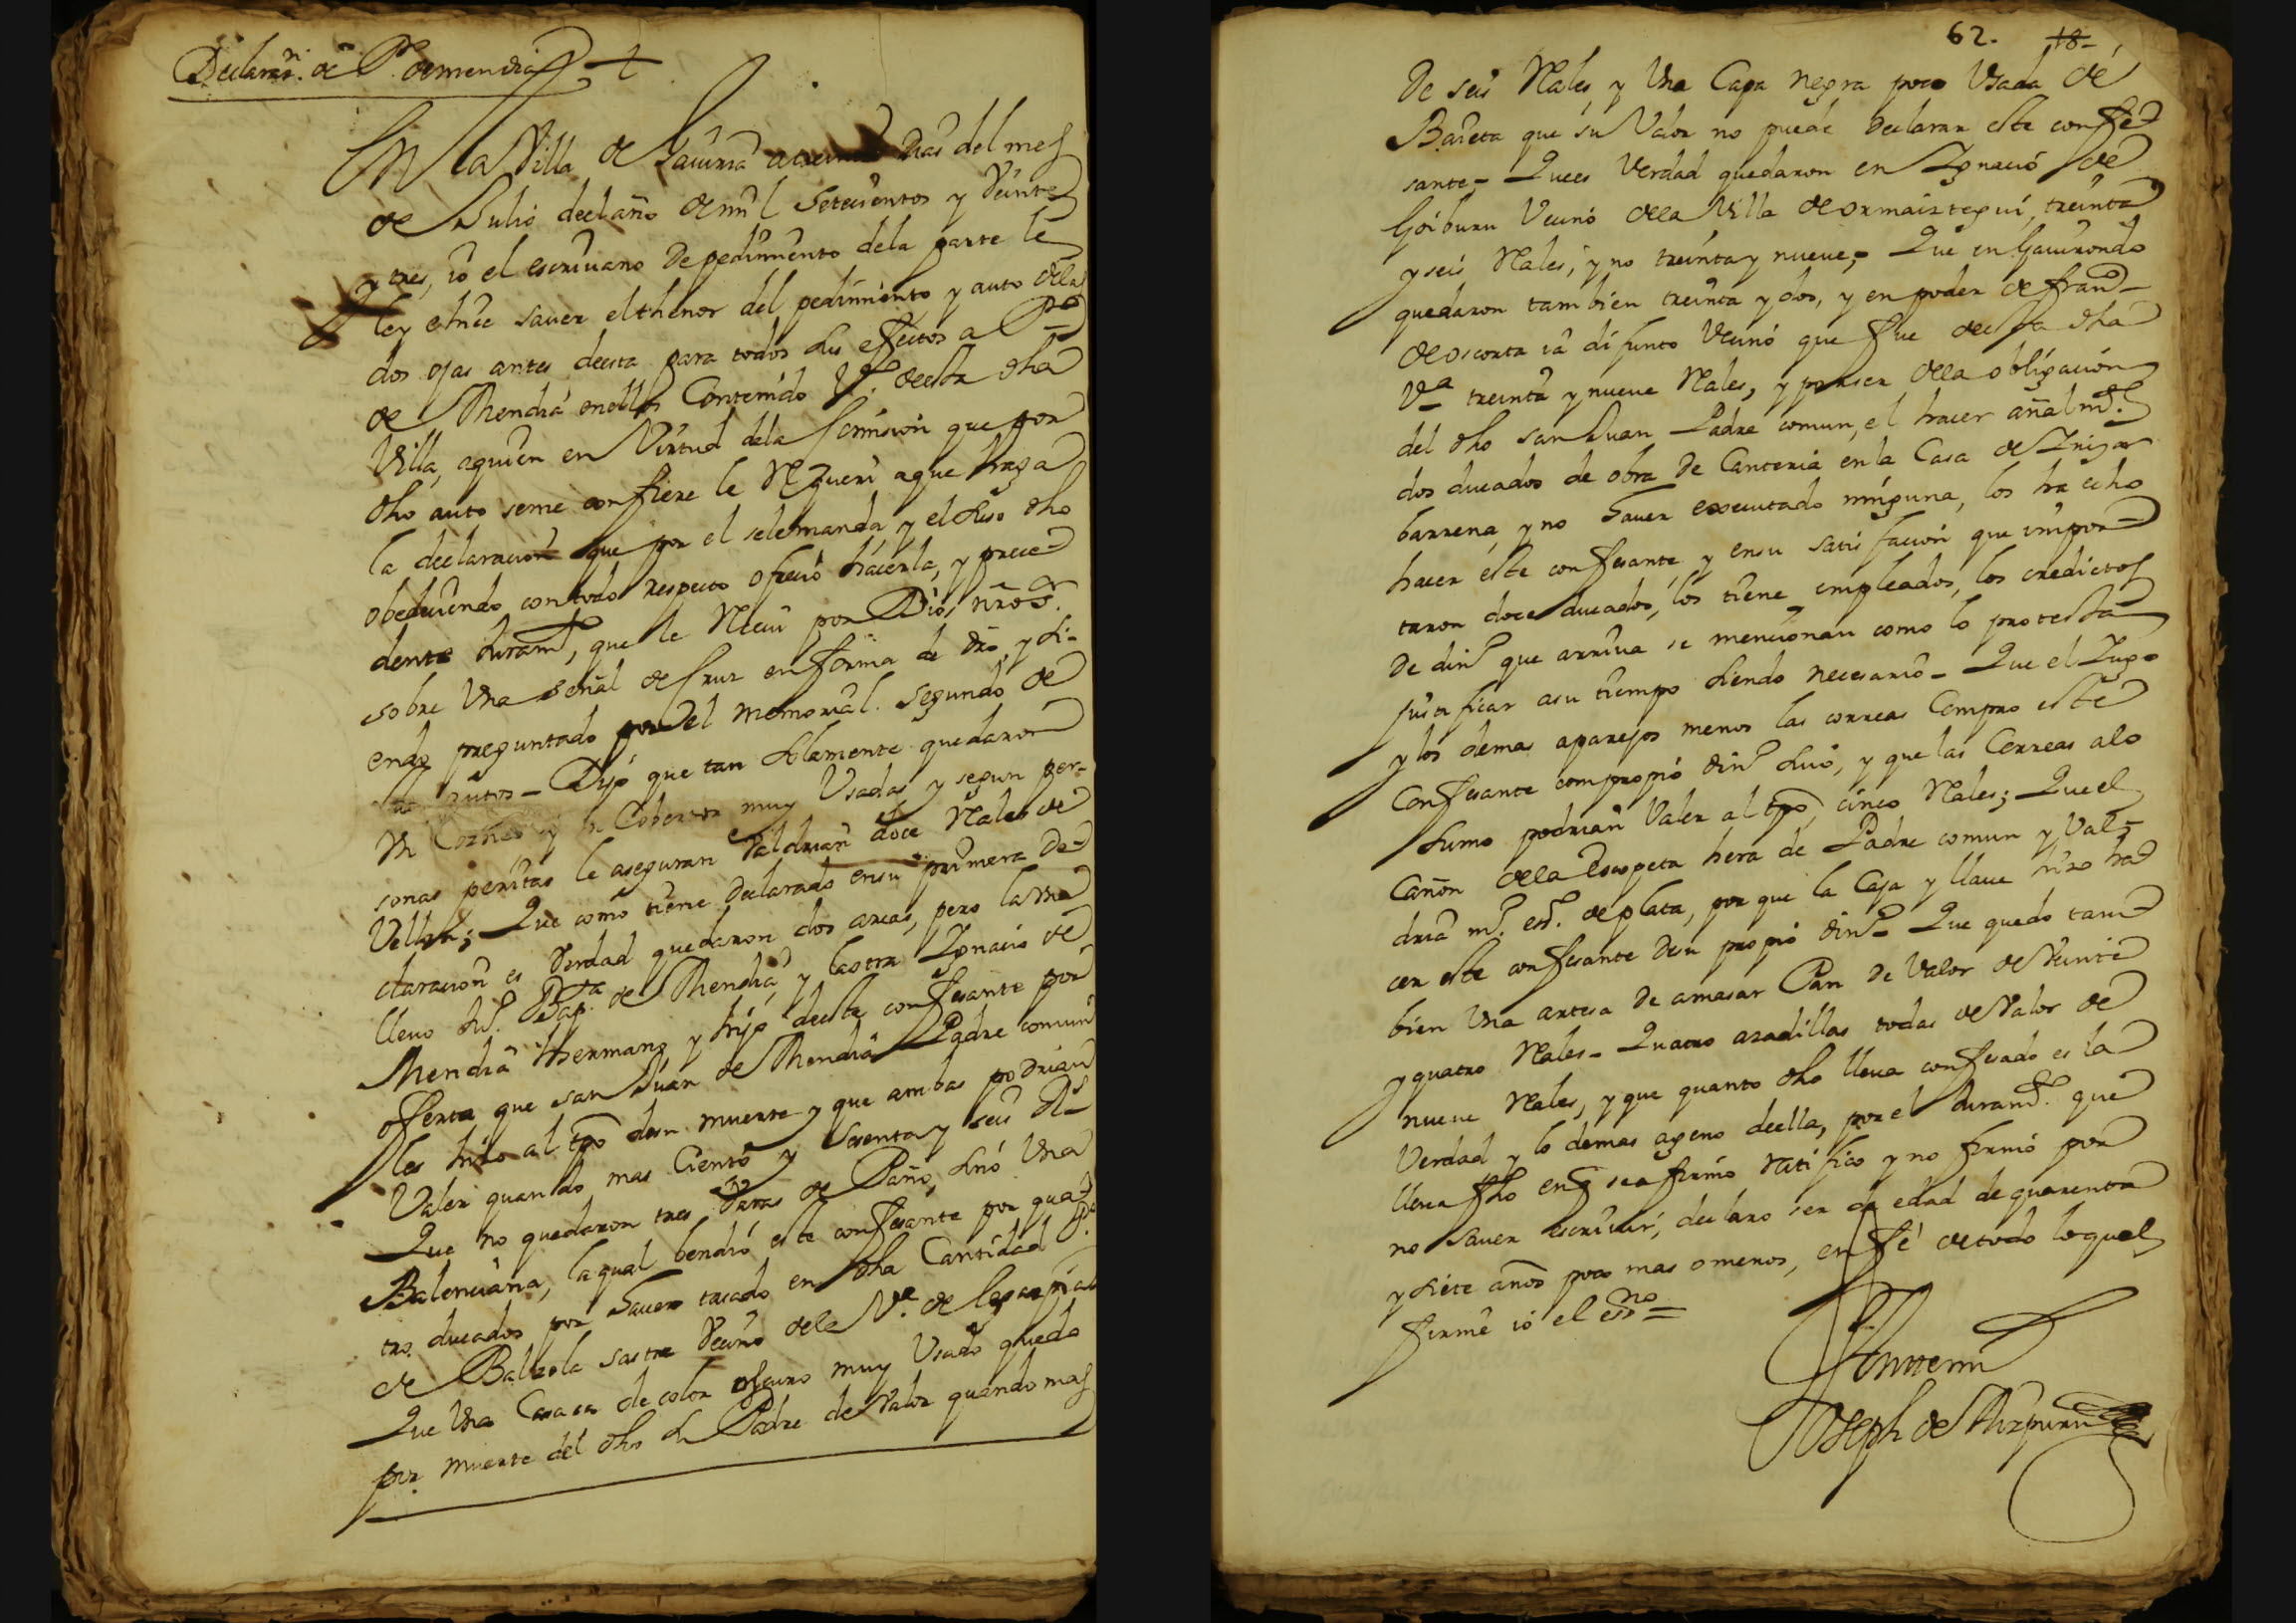 Declaraⁿ. de P.º de mendia
En la Villa de Gaviria a treinta dias del mes
de Julio del año de mil setecientos y veinte
y tres, io el escriuano de pedimiento dela parte le
ley e hice sauer el thenor del pedimiento y auto de las
dos ojas antes desta para todos sus efectos a P.º
de Mendia enellos Contenido V.º desta dha
Villa, aquien en Virtud dela Comision que por
dho auto seme confiere le Requeri aque haga
la declaracion que por el sele manda, y el suso dho
obedeciendo con todo respecto ofrecio hacerla, y prece
dente Juram.to, que le Reciui por Dios nro s.r
sobre Vna señal de Cruz en forma de dro, y si-
endo preguntado por del memorial. Segundo de
autos - Dijo que tan solamente quedaron
Vn y Vn Cobertor muy Vsadas y segun per-
sonas peritas le aseguran Valdrian doce Rales de
Vellon; Que como tiene declarado en su primera de
claracion es Verdad quedaron dos arcas, pero la Vna
lleuo Ju.º Bap.ta de Mendia, y la otra Ignacio de
Mendia Hermano y hijo deeste confesante por
oferta que san Juan de Mendia Padre comun
les hizo al tpo desu muerte y que ambas podrian
Valer quando mas Ciento y sesenta y seis Rs
Que no quedaron tres Varas de Paño, sinó Vna
Balenciana, laqual bendió este confesante por qua
tro ducados por hauer tasado en dha Cantidad P.º
de Balzola sastre Vecino dela V.a de legazpia
Que Vna Casaca de color oscuro muy Vsado quedo
por muerte del dho su Padre de Valor quando mas
62. 18-
De seis Rales, y Vna Capa negra poco Vsada de
Baieta que su Valor no puede declarar este confe
sante - Quees Verdad quedaron en Ignacio de
Goiburu Vecino dela Villa de ormaiztegui, treinta
y seis Rales, y no treinta y nueue; Que en Gauirondo
quedaron tambien treinta y dos, y en poder de fran.co
de oscorta iá difunto Vecino que fue deesta dha
V.a treinta y nueue Rales, y por ser dela obligacion
del dho san Juan Padre comun, el hacer añalm.te
dos ducados de obra de Canteria en la Casa de Inigo
barrena, y no hauer executado ninguna, los ha echo
hacer este confesante y ensu satisfacion que impor
taron doce ducados, los tiene empleados, los credictos
de din.º que arriua se mencionan como lo protesta
justificar asu tiempo siendo necesario - Que el Iugo
y los demas aparejos menos las correas Compro este
Confesante con propio din.º suio, y que las Correas alo
sumo podrian Valer al tpo, cinco Rales; Que el
Cañon dela Escopeta hera de Padre comun y Val-
dria m.º es.do de plata, por que la Caja y llaue hizo ha
cer este confesante desu propio din.º - Que quedo tam
bien Vna artesa de amasar Pan de Valor de Veinte
y quatro Rales - Quatro azadillas todas de Valor de
nueue Rales, y que quanto dho lleua confesado es la
Verdad y lo demas ageno deella, por el Juram.to que
lleua fho enq se afirmo Ratifico y no firmó por
no sauer escriuir, declaro ser de edad de quarenta
y siete años poco mas o menos, en fé de todo lo qual
firmé io el ess.no =
Ante mi
Joseph de Aizpuru